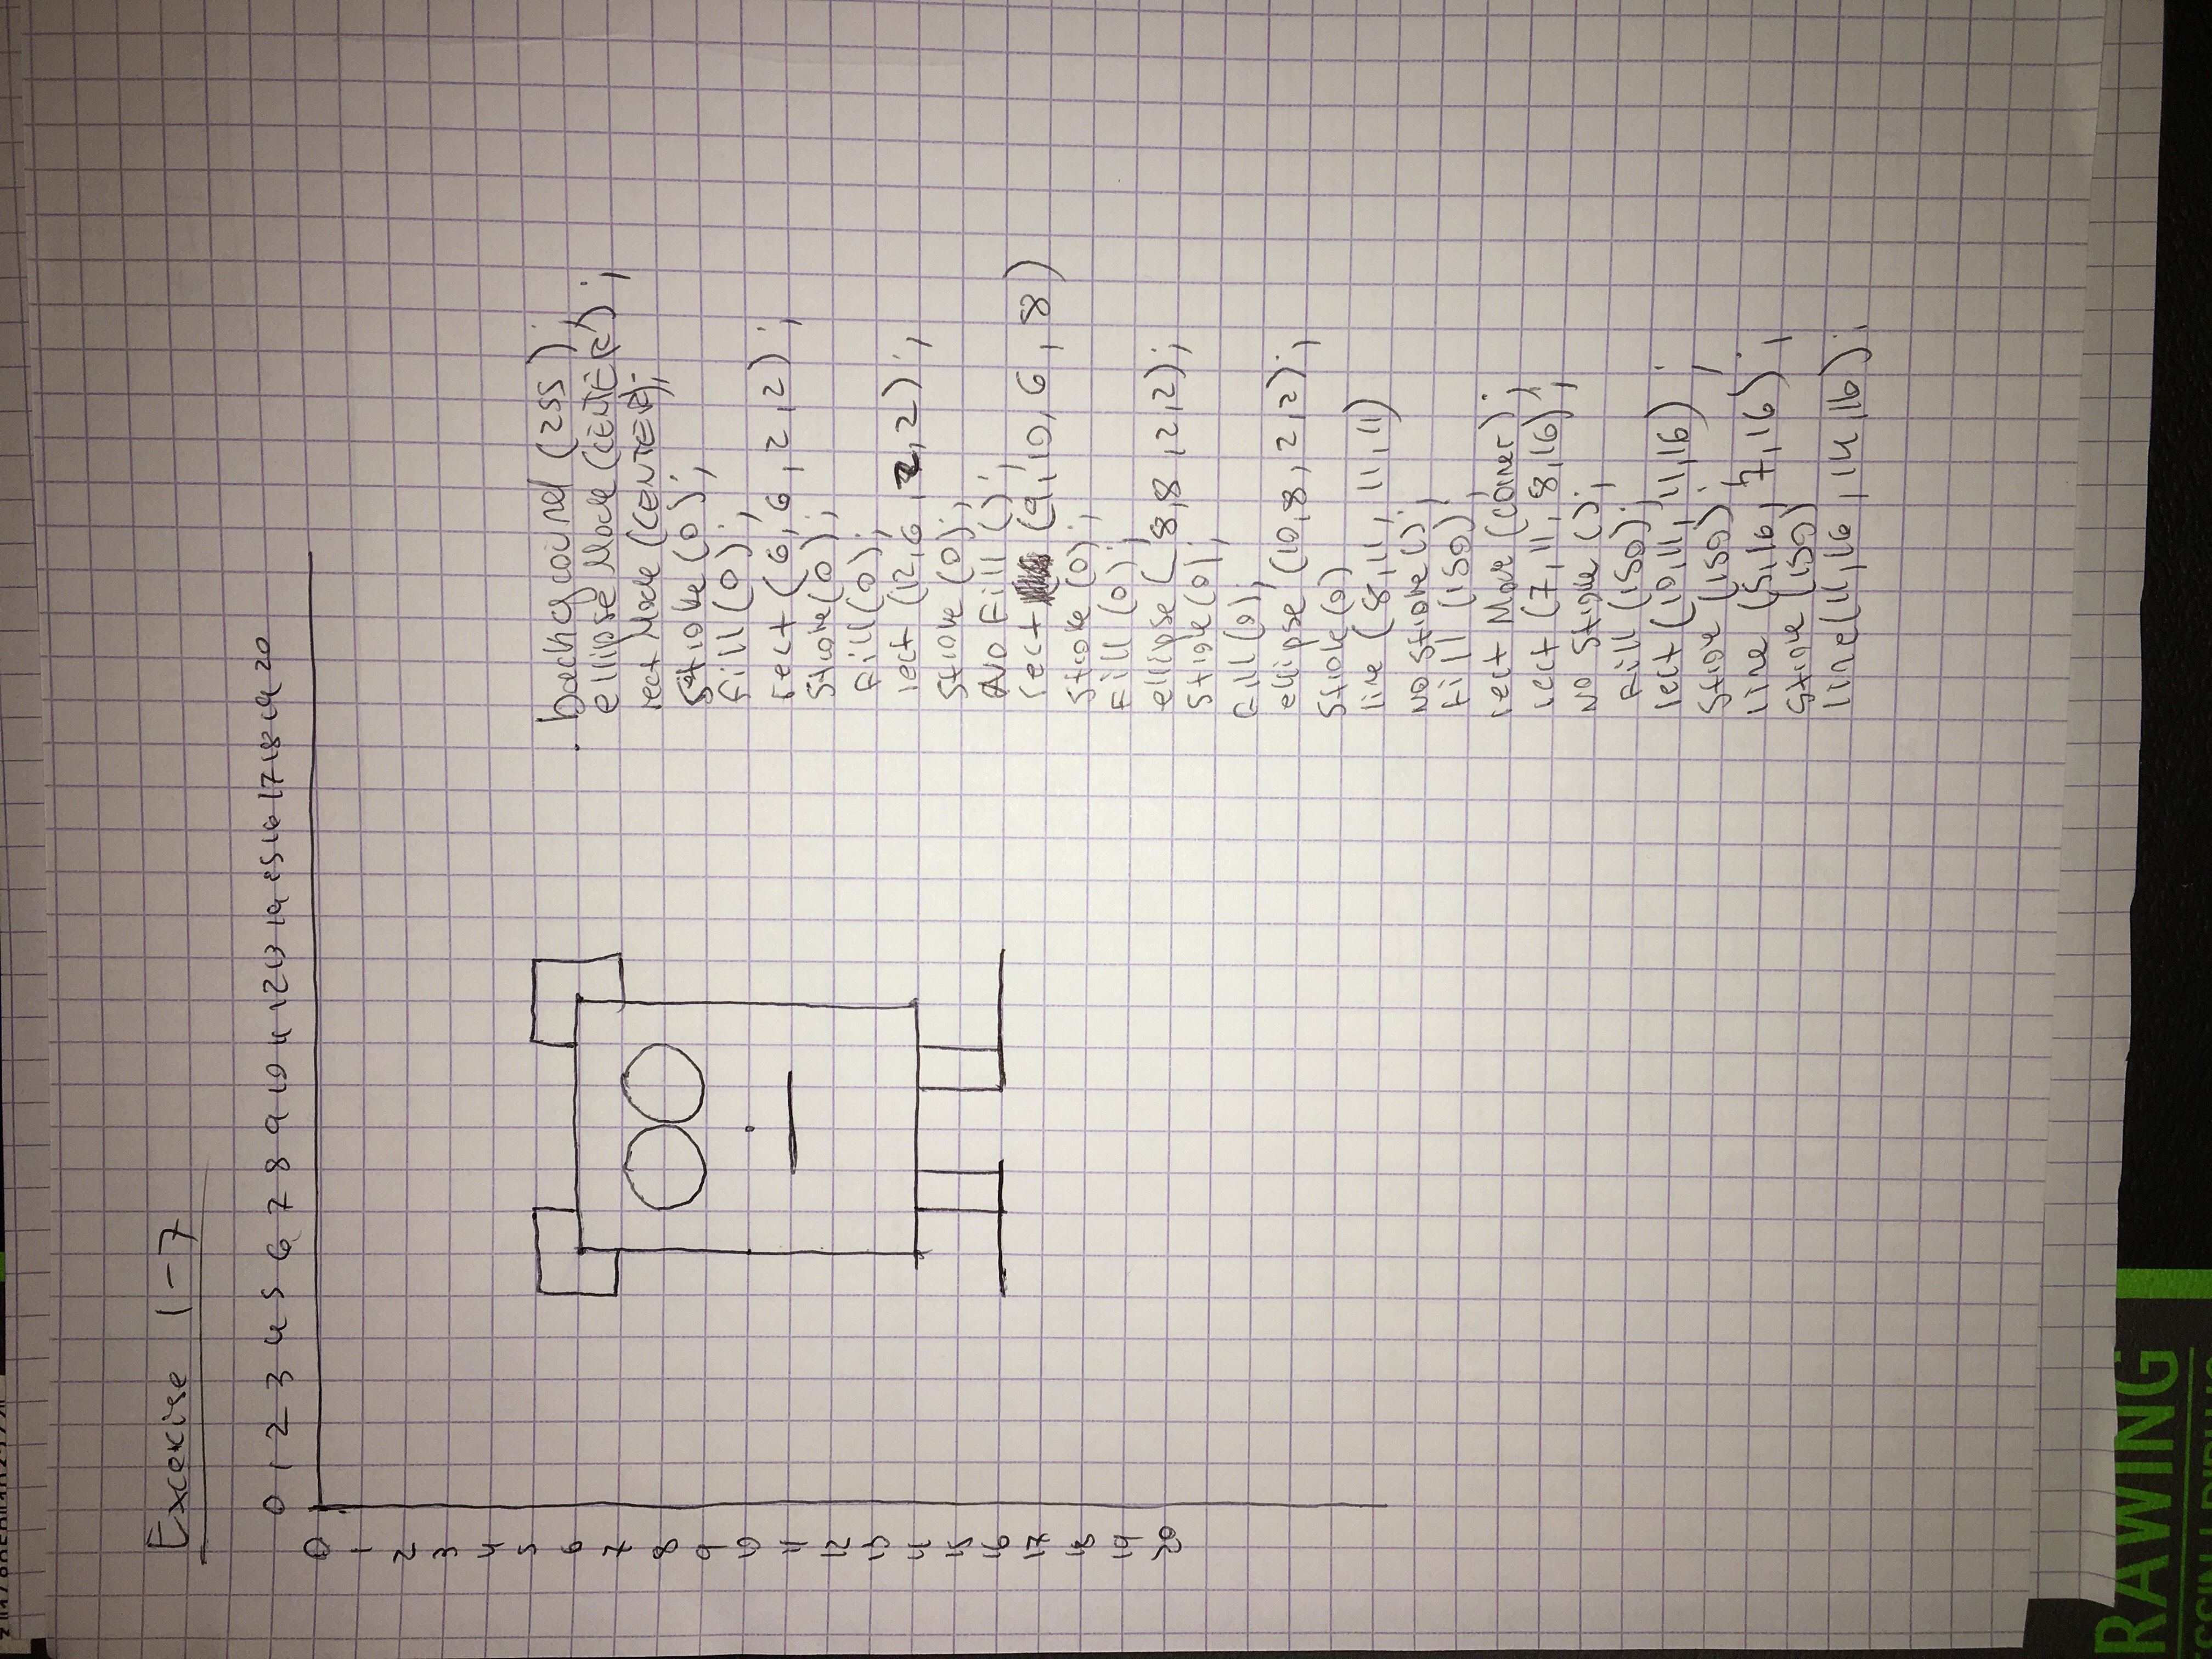 Excercise 1-7
0 1 2 3 4 5 6 7 8 9 10 11 12 13 14 15 16 17 18 19 20
0
1
2
3
4
5
6
7
8
9
10
11
12
13
14
15
16
17
18
19
20
background (255);
ellipse Mode (CENTER);
rect Mode (CENTER);
Stroke (0);
fill (0);
rect (6, 6, 2, 2);
Stroke(0);
Fill(0);
rect (12, 6, 2, 2);
Stroke (0);
No Fill ();
rect (9, 10, 6, 8)
Stroke (0);
Fill (0);
ellipse (8,8, 2,2);
Stroke (0);
Fill (0);
ellipse (10,8, 2,2);
Stroke (0)
line (8,11, 11,11)
NO Stroke ();
Fill (150);
rect Mode (corner);
rect (7, 11, 8,16);
NO Stroke ();
Fill (150);
rect (10,11, 11,16);
Stroke (150);
line (5,16, 7,16);
Stroke (150)
line(11,16, 14,16);
RAWING